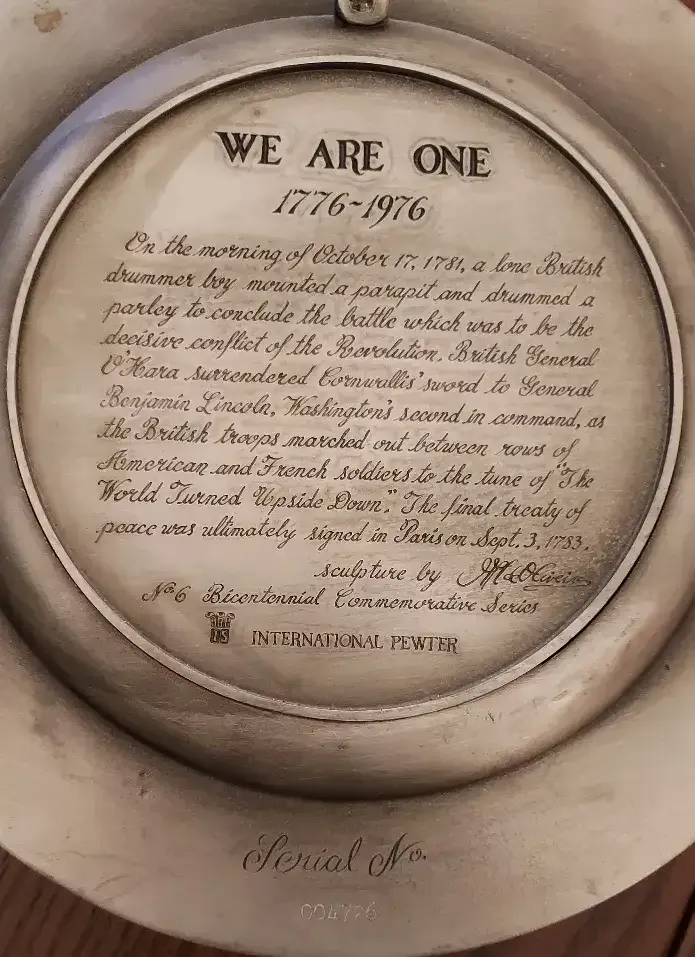 WE ARE ONE
1776~1976
On the morning of October 17, 1781, a lone British
drummer boy mounted a parapit and drummed a
parley to conclude the battle which was to be the
decisive conflict of the Revolution. British General
O'Hara surrendered Cornwallis' sword to General
Benjamin Lincoln, Washington's second in command, as
the British troops marched out between rows of
American and French soldiers to the tune of "The
World Turned Upside Down". The final treaty of
peace was ultimately signed in Paris on Sept. 3, 1783.
sculpture by
No 6 Bicentennial Commemorative Series
IS INTERNATIONAL PEWTER
Serial No.